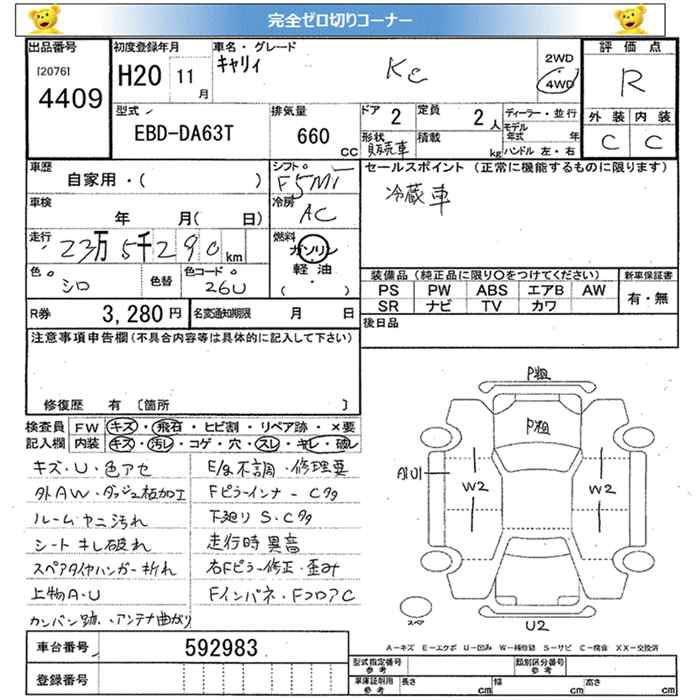 完全ゼロ切りコーナー
出品番号
[2076]
4409
初度登録年月
H20 11 月
車名・グレード
キャリィ
KC
2WD
4WD
評価点
R
外装 内装
C C
型式
EBD-DA63T
排気量
660 CC
ドア 2
定員 2 人
形状 販売車
積載 kg
ディーラー・並行
モデル年式 年
ハンドル 左・右
車歴
自家用・( )
シフト
F5MT
セールスポイント (正常に機能するものに限ります)
冷蔵車
車検
年 月( 日)
冷房
AC
走行
23万5千290 km
燃料
ガソリン
軽油
( ・ )
色
シロ
色替
色コード
26U
装備品 (純正品に限り○をつけてください)
新車保証書
PS PW ABS エアB AW
SR ナビ TV カワ
有・無
R券 3,280 円
名変通知期限 月 日
後日品
注意事項申告欄(不具合内容等は具体的に記入して下さい)
修復歴 有 [箇所 ]
検査員記入欄
FW キズ・飛石・ヒビ割・リペア跡・×要
内装 キズ・汚レ・コゲ・穴・スレ・キレ・破レ
キズ・U・色アセ
外AW・ダッシュ板加工
ルームヤニ汚れ
シートキレ破れ
スペアタイヤハンガー折れ
上物A・U
カンバン跡・アンテナ曲がり
E/g不調・修理要
FピラーインナーC多
下廻りS・C多
走行時異音
右Fピラー修正・歪み
Fインパネ・FフロアC
P粗
P粗
W2
W2
U2
スペア
車台番号 592983
登録番号
A-キズ E-エクボ U-凹み W-補修跡 S-サビ C-腐食 XX-交換済
型式指定番号 参考
類別区分番号 参考
車庫証明用 参考
長さ cm
幅 cm
高さ cm